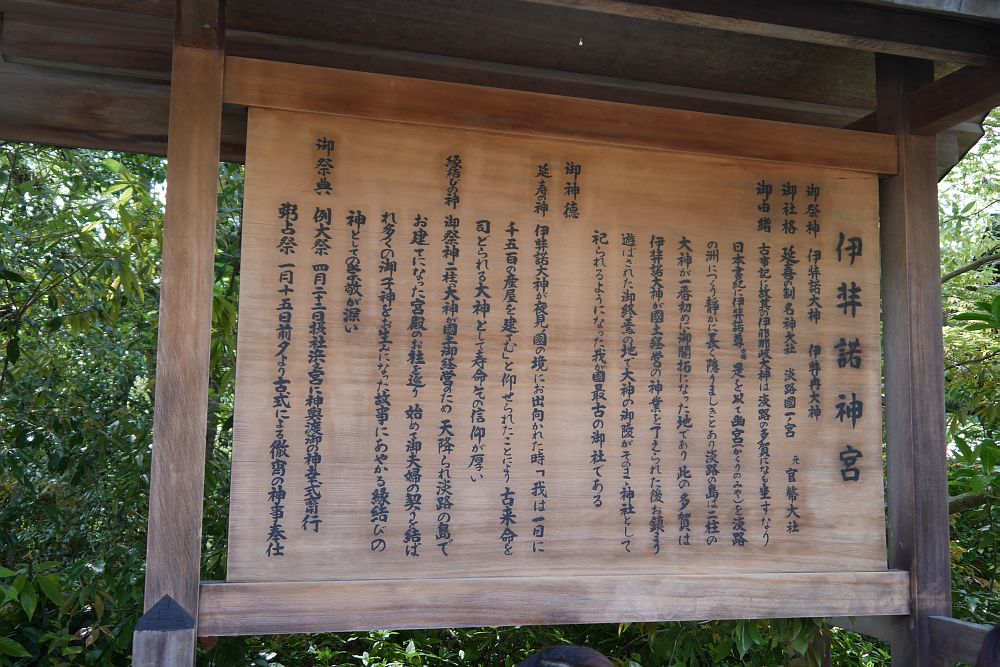 伊弉諾神宮
御祭神 伊弉諾大神 伊弉冉大神
御社格 延喜の制名神大社 淡路國一宮 元官幣大社
御由緒 古事記に故其の伊耶那岐大神は淡路の多賀になも坐すなり
日本書紀に伊弉諾尊 是を以て幽宮(かくりのみや)を淡路
の洲につくり静かに長く隠りましきとあり淡路の島は二柱の
大神が一番初めに御開拓になった地であり 此の多賀は
伊弉諾大神が國土経営の神業を了えられた後お鎮まり
遊ばされた御終焉の地で大神の御陵がそのまゝ神社として
祀られるようになった我が國最古の御社である
御神徳
延寿の神 伊弉諾大神が夜見ノ國の境にお出向かれた時「我は一日に
千五百の産屋を建てむ」と仰せられたことにより 古来命を
司どられる大神として寿命ての信仰が厚い
縁結びの神 御祭神二柱の大神が國土御経営のため 天降られ淡路の島で
お建てになった宮殿のお柱を巡り 始めて御夫婦の契りを結ば
れ多くの御子神をお生みになった故事にあやかる縁結びの
神としての崇敬が深い
御祭典 例大祭 四月二十二日摂社浜ノ宮に神輿渡御の神幸式斎行
粥占祭 一月十五日前夕より古式による徹宵の神事奉仕